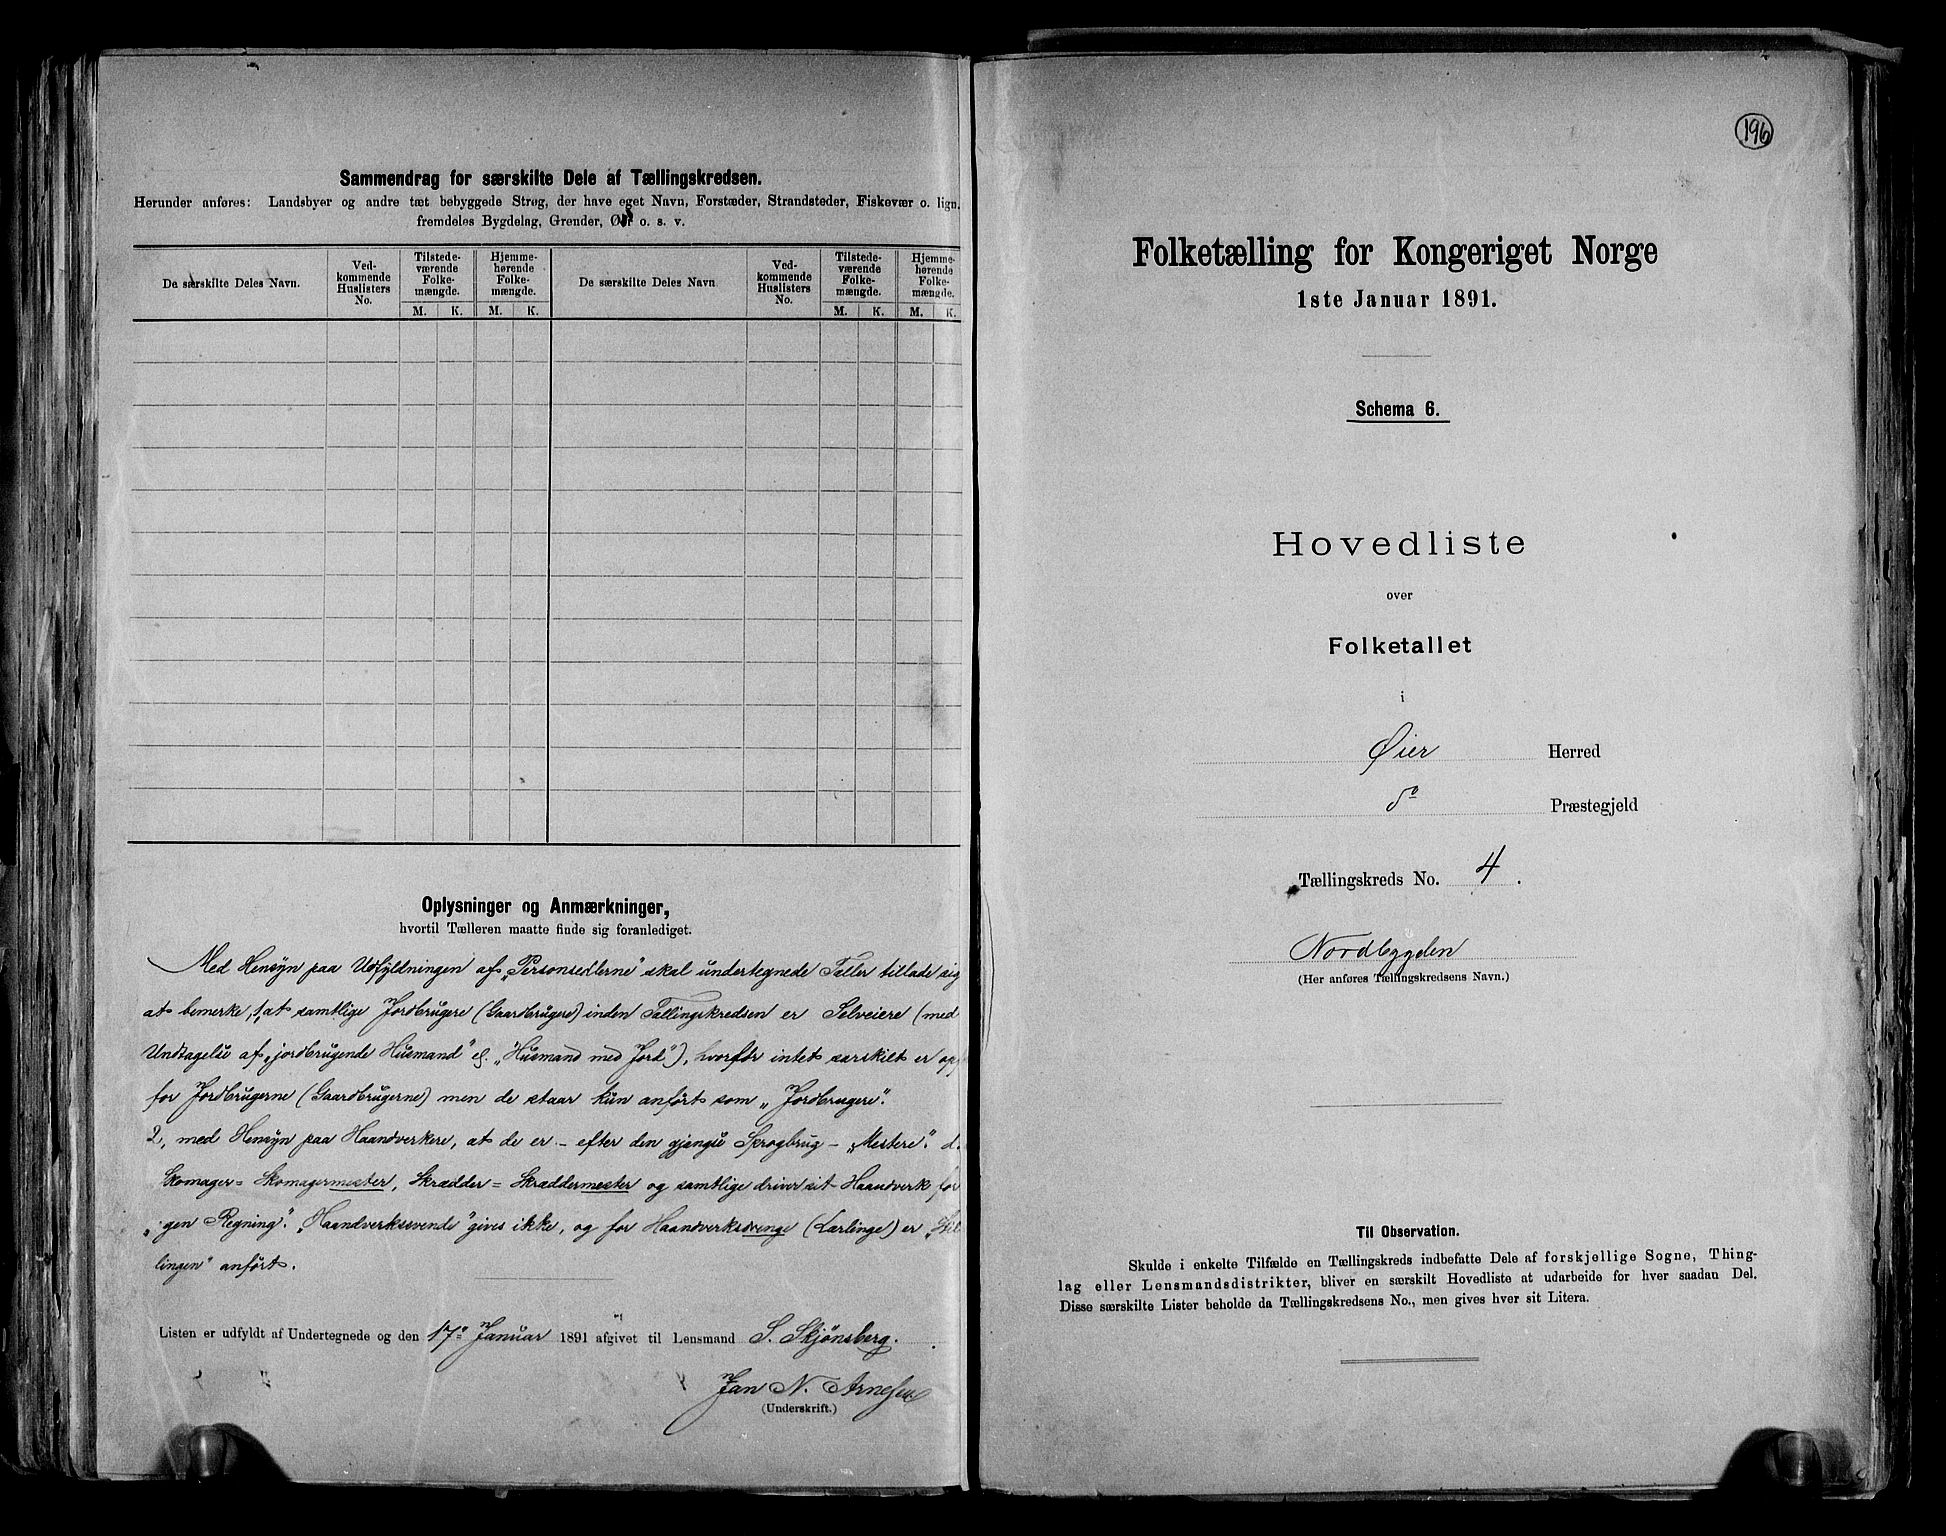 Sammendrag for særskilte Dele af Tællingskredsen.
Herunder anføres: Landsbyer og andre tæt bebyggede Strøg, der have eget Navn, Forstæder, Strandsteder, Fiskevær o. lign.
fremdeles Bygdelag, Grender, Øer o. s. v.
De særskilte Deles Navn.
Ved-
kommende
Huslisters
No.
Tilstede-
værende
Folke-
mængde.
Hjemme-
hørende
Folke-
mængde.
De særskilte Deles Navn
Ved-
kommende
Huslisters
No.
Tilstede-
værende
Folke-
mængde.
Hjemme-
hørende
Folke-
mængde.
M. K. M. K. M. K. M. K.
Oplysninger og Anmærkninger,
hvortil Tælleren maatte finde sig foranlediget.
Med Hensyn paa Udfyldningen af „Personsedlerne“ skal undertegnede Tæller tillade sig
at bemerke, 1, at samtlige Jordbrugere (Gaardbrugere) inden Tællingskredsen er Selveiere (med
Undtagelse af „jordbrugende Husmand“ el. „Husmand med Jord“), hvorfor intet særskilt er op
for Jordbrugerne (Gaardbrugerne) men de staar kun anført som „Jordbrugere“.
2, med Hensyn paa Haandverkere, at de er – efter den gjengse Sprogbrug – „Mestere“. d.
Skomager = Skomagermester, Skrædder = Skræddermester og samtlige driver sit Haandverk for
„gen Regning“. „Haandverkssvende“ gives ikke, og for Haandverksdrenge (Lærlinge) er „Stil
lingen“ anført.
Listen er udfyldt af Undertegnede og den 17de Januar 1891 afgivet til Lensmand S. Skjønsberg.
Jan N. Arnesen
(Underskrift.)
196
Folketælling for Kongeriget Norge
1ste Januar 1891.
Schema 6.
Hovedliste
over
Folketallet
i
Øier Herred
do Præstegjeld
Tællingskreds No. 4.
Nordbygden
(Her anføres Tællingskredsens Navn.)
Til Observation.
Skulde i enkelte Tilfælde en Tællingskreds indbefatte Dele af forskjellige Sogne, Thing-
lag eller Lensmandsdistrikter, bliver en særskilt Hovedliste at udarbeide for hver saadan Del.
Disse særskilte Lister beholde da Tællingskredsens No., men gives hver sit Litera.